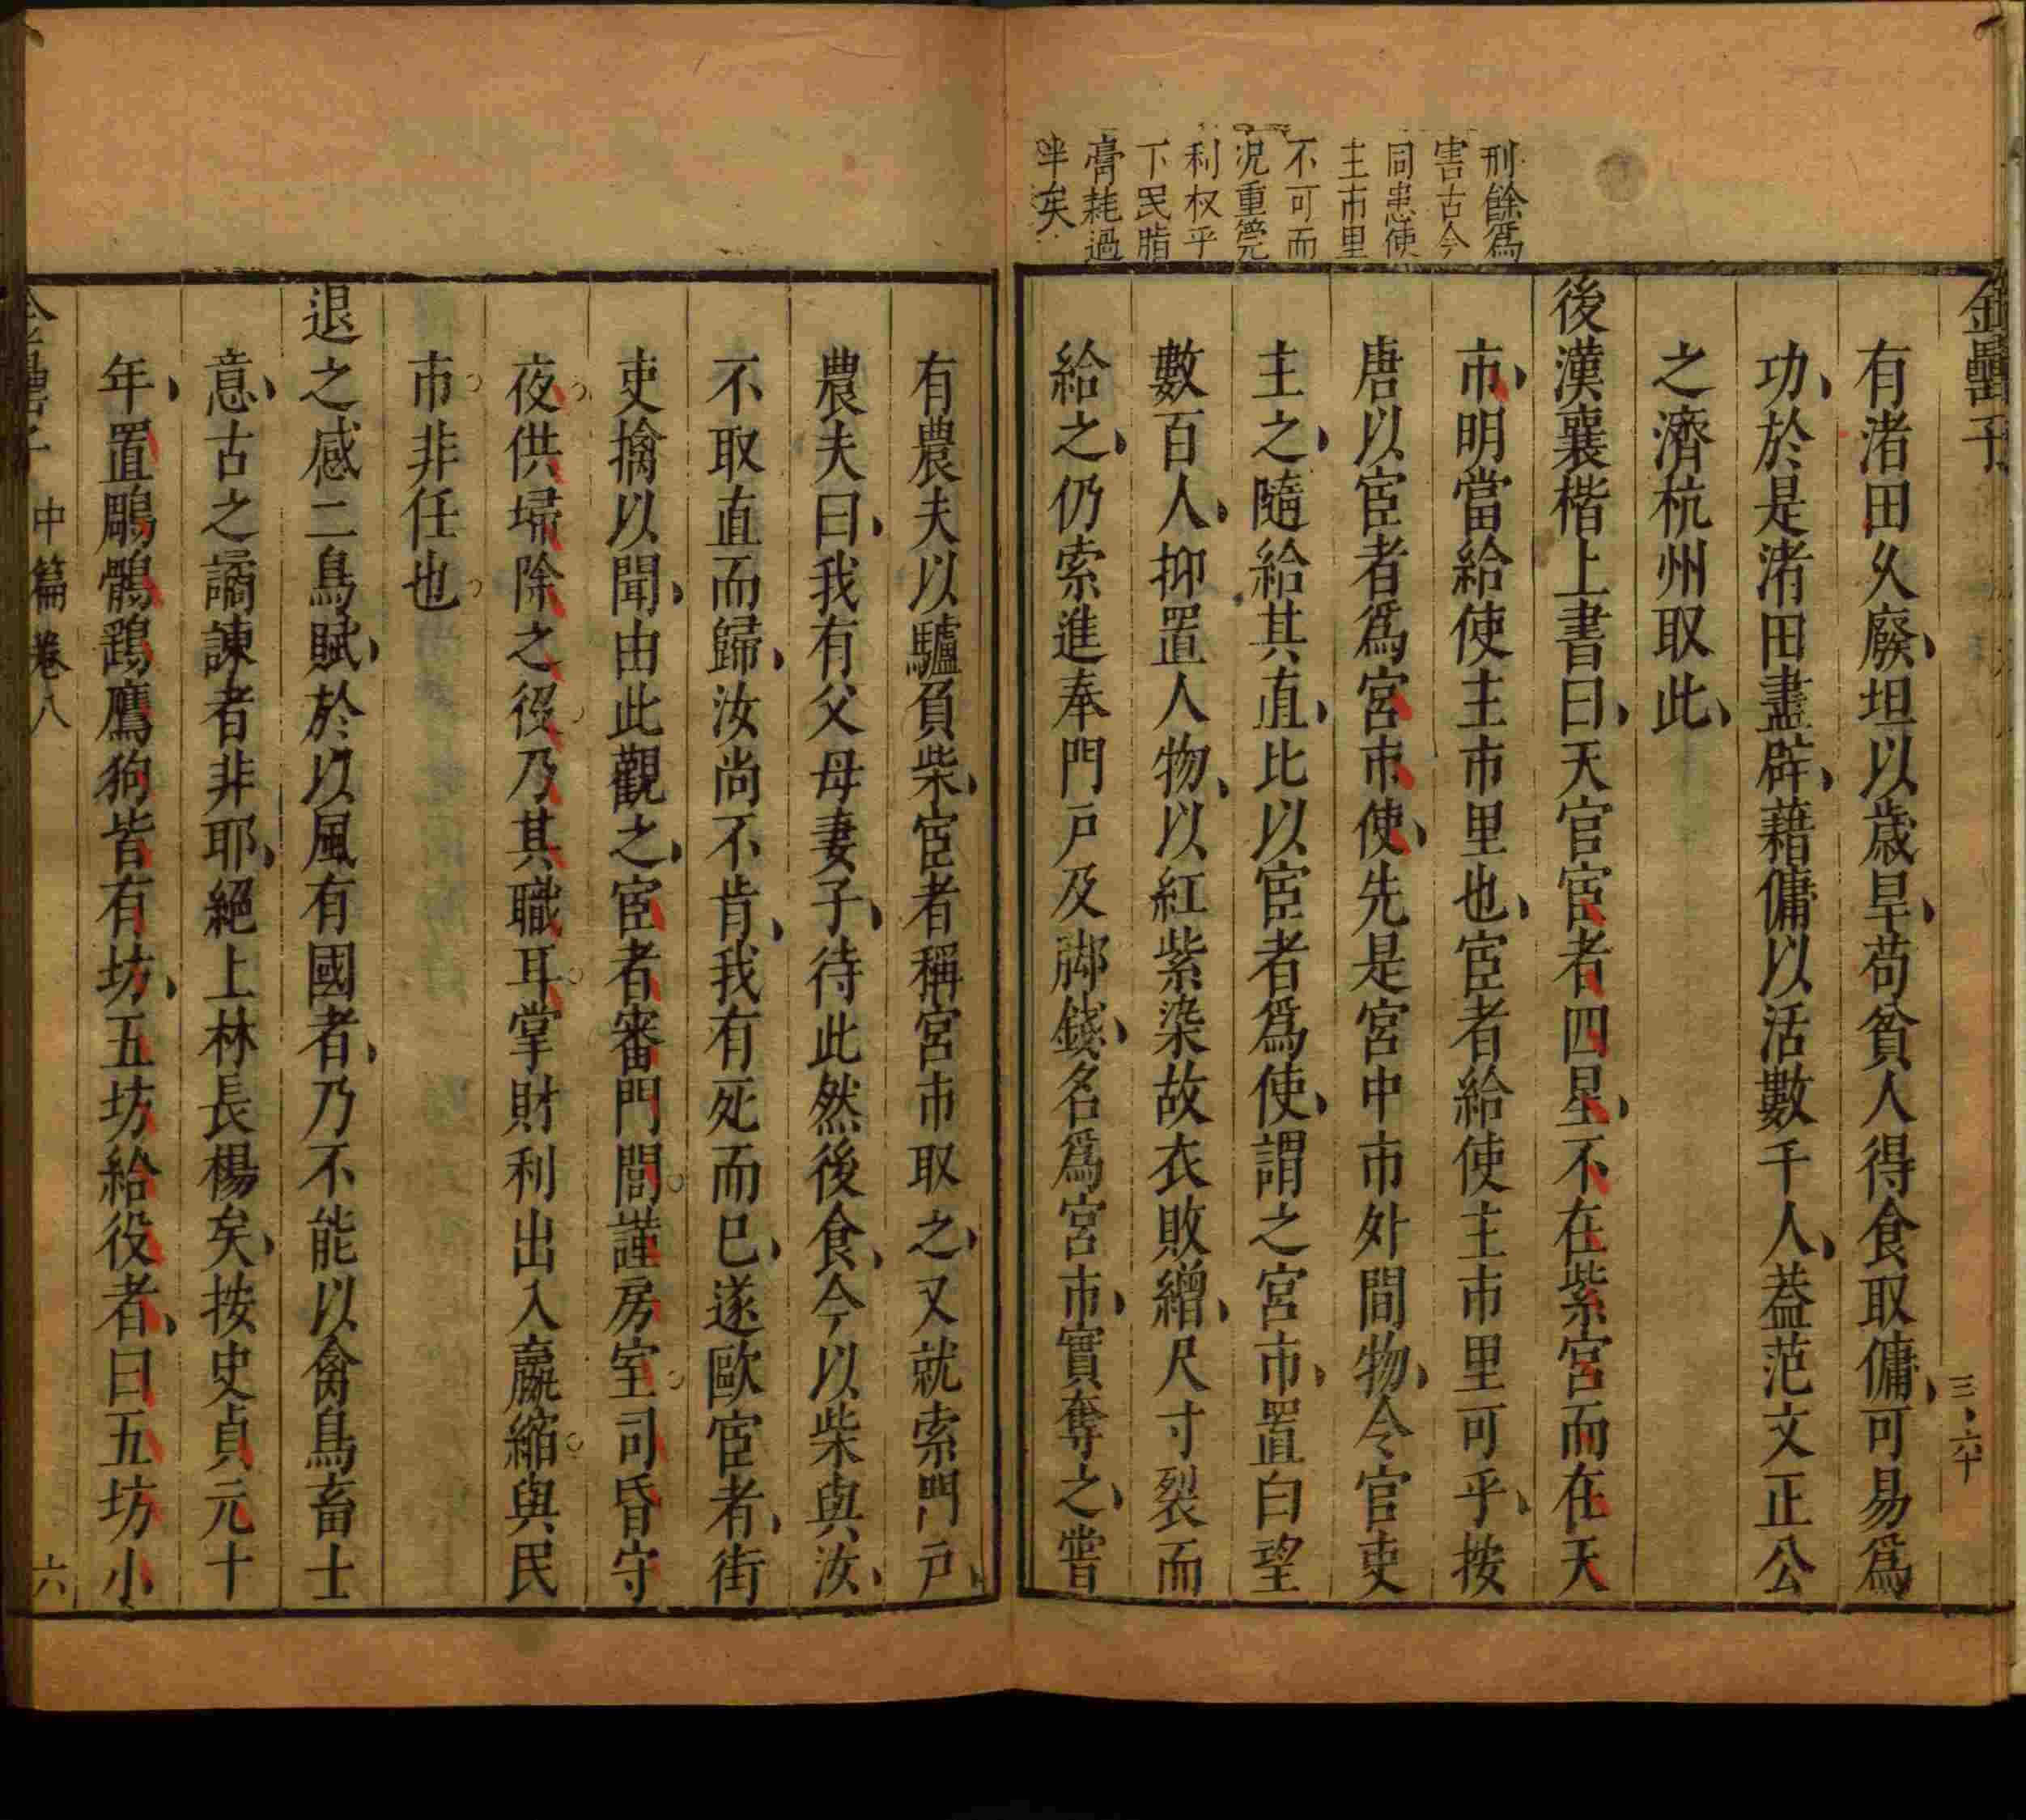 金罍子
三六十
有渚田久廢坦以歲旱苟貧人得食取傭可易爲
功於是渚田盡辟藉傭以活數千人葢范文正公
之濟杭州取此
後漢襄楷上書曰天官宦者四星不在紫宮而在天
市明當給使主市里也宦者給使主市里可乎按
唐以宦者爲宮市使先是宮中市外間物令官吏
主之隨給其直比以宦者爲使謂之宮市置白望
數百人抑置人物以紅紫染故衣敗繒尺寸裂而
給之仍索進奉門戶及脚錢名爲宮市實奪之嘗
刑餘爲
害古今
同患使
主市里
不可而
況重筦
利权乎
下民脂
膏耗過
半矣
有農夫以驢負柴宦者稱宮市取之又就索門戶
農夫曰我有父母妻子待此然後食今以柴與汝
不取直而歸汝尚不肯我有死而已遂歐宦者街
吏擒以聞由此觀之宦者審門閭謹房室司昏守
夜供埽除之役乃其職耳掌財利出入贏縮與民
市非任也
退之感二鳥賦於以風有國者乃不能以禽鳥畜士
意古之譎諫者非耶絕上林長楊矣按史貞元十
年置鵰鶻鷂鷹狗皆有坊五坊給役者曰五坊小
金罍子 中篇卷八 六